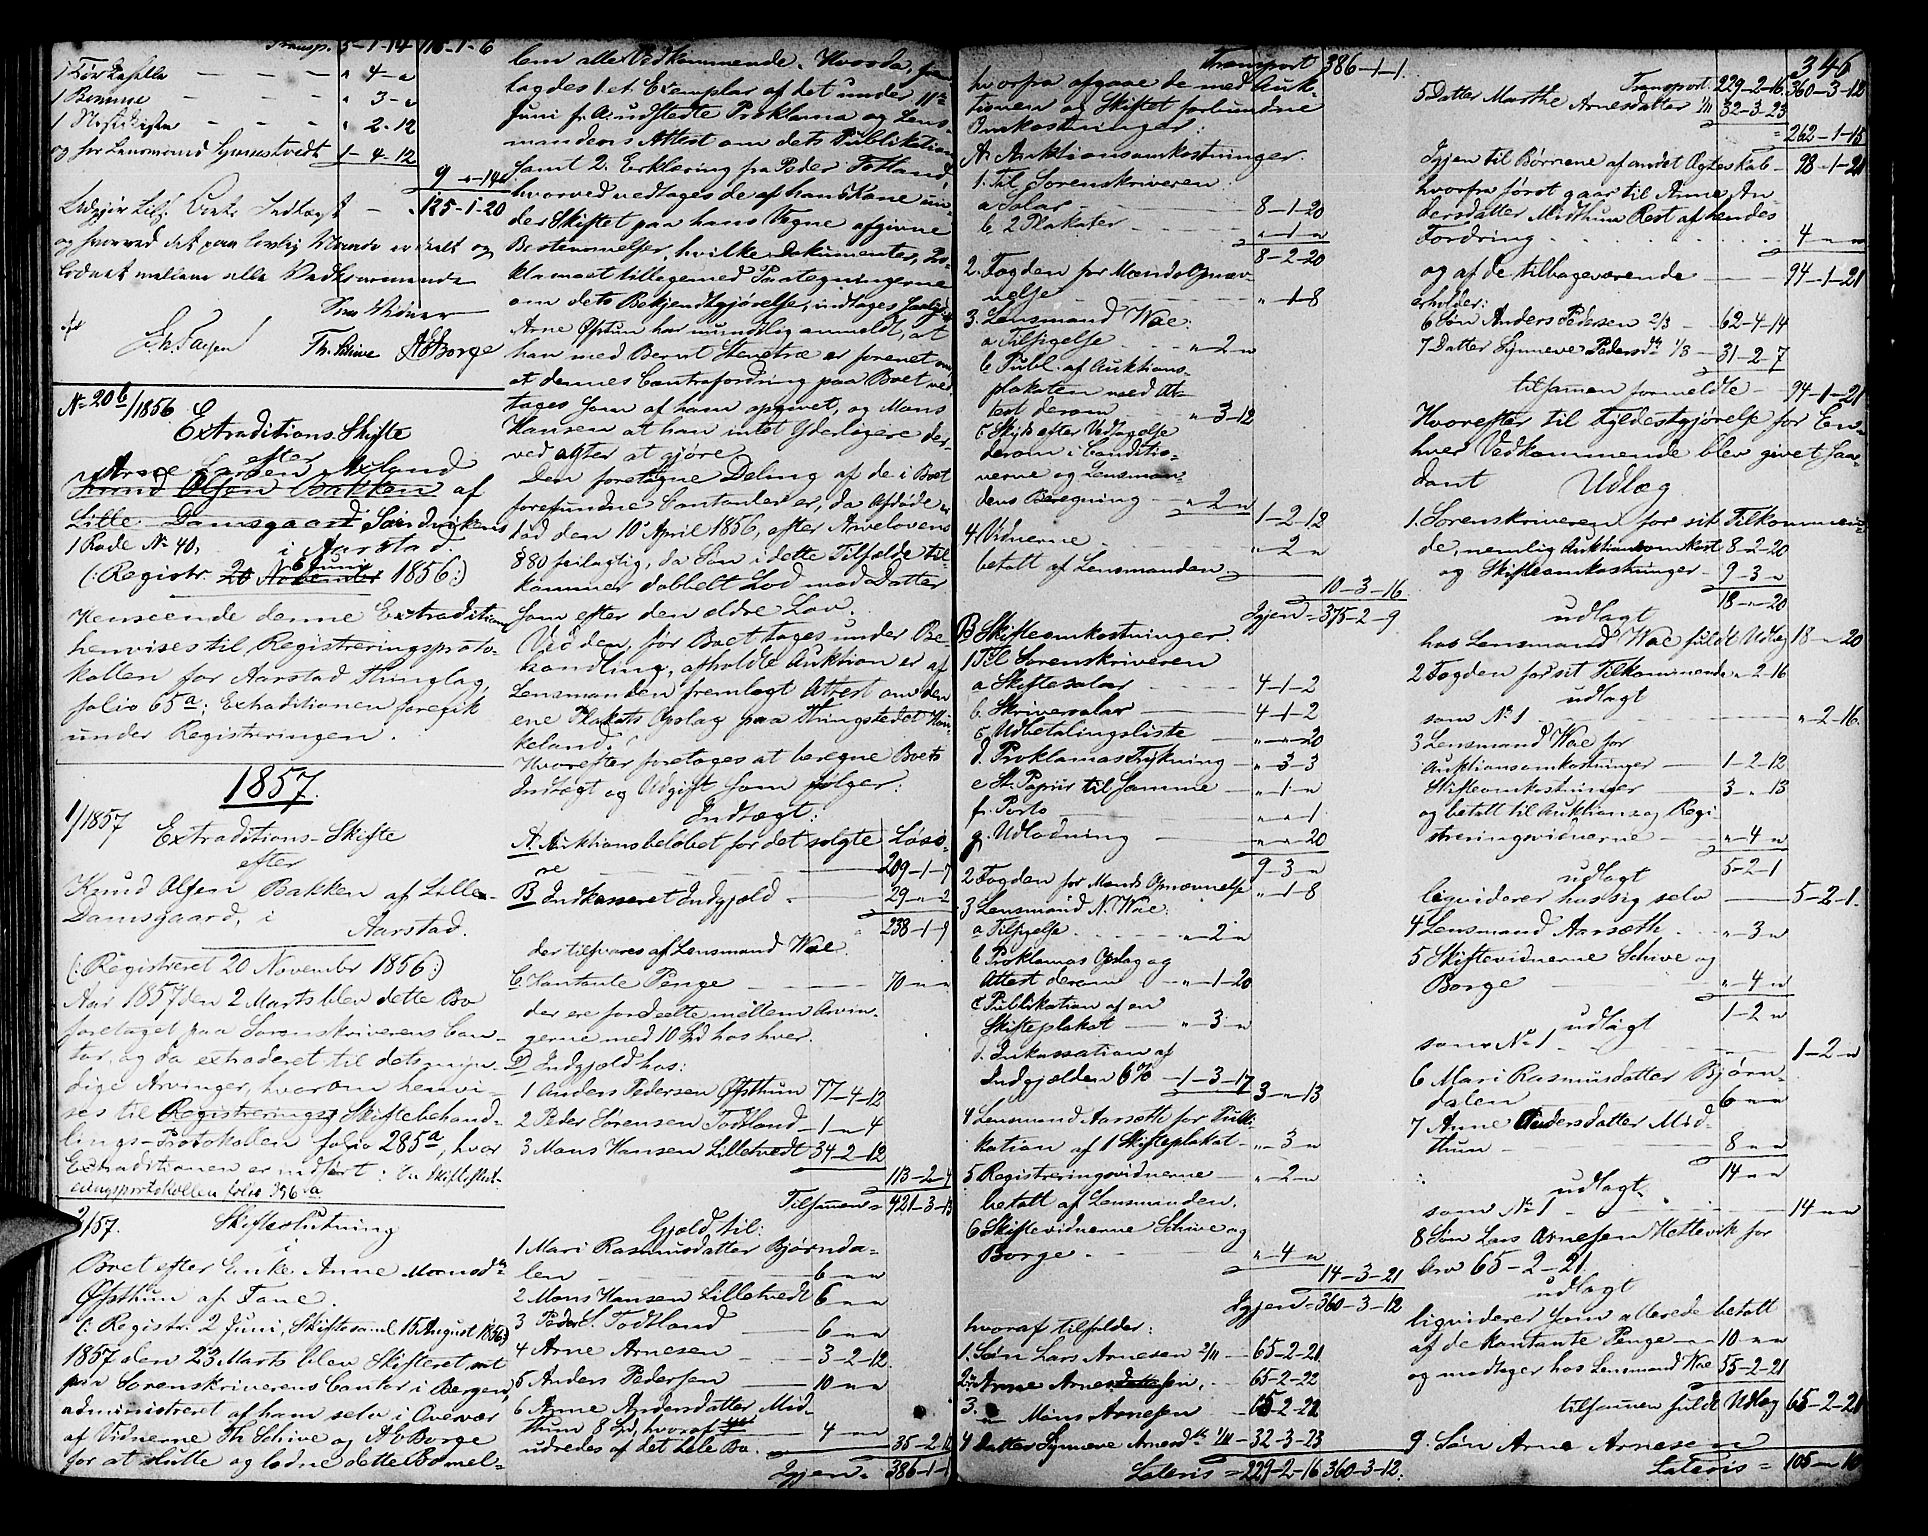 Transp. 3-1-14 115-1-6
1 Tørkasella — — — " 4-"
1 Bomme — — — " 3-"
1 Mostekiste — — — " 2-12
og for Lensmand Synnestvedt 1-4-12
9-"-14
Udgjør lige Boets Indtægt — 125-1-20
og hvorved det paa lovlig Maade er skilt og
lodnet mellem alle Vedkommende
Th. Schive A. Borge
№ 20b/1856.
Extraditions-Skifte
efter
Arne Larsen Axland
Knud Olsen Bakken af
Lille-Damsgaard Sandvikens
1 Rode № 40, i Aarstad
6 Juni
(: Registr. 20 November 1856 :)
Henseende denne Extradition
henvises til Registreringsproto-
kollen for Aarstad Thinglag,
folio 65a; Extraditionen foregik
under Registreringen.
1857.
1/1857
Extraditions-Skifte
efter
Knud Olsen Bakken af Lille-
Damsgaard, i
Aarstad.
(: Registreret 20 November 1856 :)
Aar 1857 den 2 Marts blev dette Bo
foretaget paa Sorenskriverens Con-
tor, og da extraderet til dets myn-
dige Arvinger, hvorom henvi-
ses til Registrerings Skiftebehand-
lings-Protokollen folio 285a, hvor
Extraditionen er indført: En Skifteslut-
ningsprotokollen folio 356a
2/57.
Skifteslutning
i
Boet efter Enke Anne Monsdtr
Øfsthun af Fane.
(: Registr. 2 Juni, Skiftesaml. 15 August 1856 :)
1857 den 23 Marts blev Skifteret sat
paa Sorenskriverens Contor i Bergen,
administreret af ham selv i Overvær
af Vidnerne Th. Schive og A. Borge
for at slutte og lodne dette Bo mel-
lem alle Vedkommende. Hvorda, frem-
lagdes 1 et Exemplar af det under 11te
Juni f. A. udstedte Proklama og Lens-
mandens Attest om dets Publikation
samt 2. Erklæring fra Peder Totland,
hvorved vedtages de af hans Kone un-
der Skiftet paa hans Vegne afgivne
Bestemmelser, hvilke Dokumenter, Pro-
klamaet tilligemed Paategningerne
om dets Bekjendtgjørelse, indtages saalyd.
Arne Øfstun har mundtlig anmeldt, at
han med Bernt Stenetræ er forenet om,
at dennes Contrafordring paa Boet ved-
tages som af ham opgivet, og Mons
Hansen at han intet Yderligere der-
ved agter at gjøre.
Den foretagne Deling af de i Boet
forefundne Contanter er, da Afdøde er
død den 10' April 1856, efter Arvelovens
§ 80 feilagtig, da Søn i dette Tilfælde til-
kommer dobbelt Lod mod Datter
som efter den ældre Lov.
Ved den, før Boet tages under Be-
handling, afholdte Auktion er af
Lensmanden fremlagt Attest om den
ene Plakats Opslag paa Thingstedet Hou-
keland.
Hvorefter foretages at beregne Boets
Indtægt og Udgift som følger:
Indtægt:
A. Auktionsbeløbet for det solgte Løsø-
re — 209-1-7
B Indkasseret Indgjæld — 29-"-2
238-1-9
der tilsvares af Lensmand Wae.
C. Contante Penge — 70-"-"
der ere fordeelte mellem Arvin-
gerne med 10 Spd hos hver.
D Indgjæld hos:
1 Anders Pedersen Øfsthun 77-4-12
2 Peder Sørensen Todtland — 1-"-4
3 Mons Hansen Lilletvedt 34-2-12
113-2-4
Tilsammen = 421-3-13
Gjæld til:
1 Mari Rasmusdatter Bjørnda-
len — 6-"-"
2 Mons Hansen Lilletvedt 6-"-"
3 Peder S. Todtland — 6-"-"
4 Arne Arnesen — 3-2-12
5 Anders Pedersen — 10-"-"
6 Anne Andersdatter Mid-
thun 8 Spd, hvoraf
udredes af det hele Bo. — 4-"-"
35-2-12
Igjen = 386-1-1
Transport 386-1-1.
hvorfra afgaae de med Auk-
tionen og Skiftet forbundne
Omkostninger:
A. Auktionsomkostninger.
1. Til Sorenskriveren:
a Salar — 8-1-20
b 2 Plakater — "-1-"
8-2-20
2. Fogden for Mænds Opnæv-
nelse — "-1-8
3. Lensmand Wae:
a Tilsigelse — "-2-"
b Publ. af Auktions-
plakaten med At-
test derom — "-3-12
c Skyds efter Vedtagelse
derom i Conditio-
nerne og Lensman-
dens Beregning — "-2-"
1-2-12
4. Vidnerne — "-2-"
betalt af Lensmanden
10-3-16
Igjen = 375-2-9
B Skifteomkostninger
1 Til Sorenskriveren
a Skiftesalar — 4-1-2
b. Skriversalar — 4-1-2
c Udbetalingsliste — "-"-20
d. Proklamas Trykning — "-3-3
e St. Papiir til samme — "-1-"
f. Porto — "-"-1
g. Udlodning — "-"-20
9-3-"
2 Fogden for Mænds Opnævnelse "-1-8
3 Lensmand N. Wae:
a Tilsigelse — "-2-"
b Proklamas Opslag og
Attest derom — "-1-20
c Publikation af en
Skifteplakat — "-3-"
d. Inkassation af
Indgjælden 6% — 1-3-17
3-"-13
4 Lensmand Aarsæth for Publi-
kation af 1 Skifteplakat — "-3-"
5 Registreringsvidnerne — "-2-"
betalt af Lensmanden.
6 Skiftevidnerne Schive og
Borge. — "-4-"
14-3-21
Igjen = 360-3-12
hvoraf tilfalder:
1. Søn Lars Arnesen 2/11 — 65-2-21
2. " Arne Arnesen — 65-2-22
3. " Mons Arnesen — 65-2-22
4 Datter Synneve Arnesdtr 1/11 — 32-3-23
Lateris = 229-2-16 360-3-12.
346
Transport 229-2-16 360-3-12
5 Datter Marthe Arnesdatter 1/11 32-3-23
= 262-1-15
Igjen til Børnene af andet Ægteskab — 98-1-21
hvorfra først gaar til Anne An-
dersdatter Midthun Rest af hendes
Fordring — 4-"-"
og af de tilbageværende — 94-1-21
erholder:
6 Søn Anders Pedersen 2/3 — 62-4-14
7 Datter Synneve Pedersdtr 1/3 — 31-2-7
tilsammen formeldte — 94-1-21
Hvorefter til Fyldestgjørelse for En-
hver Vedkommende blev givet saa-
dant Udlæg
1. Sorenskriveren for sit Tilkommen-
de, nemlig Auktionsomkost 8-2-20
og Skifteomkostninger — 9-3-"
18-"-20
udlagt
hos Lensmand Wae fuldt Udlæg 18-"-20
2 Fogden for sit Tilkommende "-2-16
udlagt
som № 1 — "-2-16.
3 Lensmand Wae for
Auktionsomkostninger — 1-2-12
Skifteomkostninger — 3-"-13
og betalt til Auktions og Regi-
streringsvidnerne — "-4-"
5-2-1
udlagt
liqviderer hos sig selv — 5-2-1.
4 Lensmand Aarsæth — "-3-"
5 Skiftevidnerne Schive og
Borge — "-4-"
1-2-"
udlagt
som № 1 — 1-2-"
6 Mari Rasmusdatter Bjørn-
dalen — 6-"-"
7 Anne Andersdatter Mid-
thun — 8-"-"
14-"-"
udlagt
som № 1 — 14-"-"
8 Søn Lars Arnesen Hettevik for
Arv 65-2-21.
udlagt
liqviderer som allerede betalt
af de kontante Penge — 10-"-"
og modtager hos Lensmand Wae 55-2-21
tilsammen fuldt Udlæg 65-2-21
9. Søn Arne Arnesen
Lateris = 105-"-10